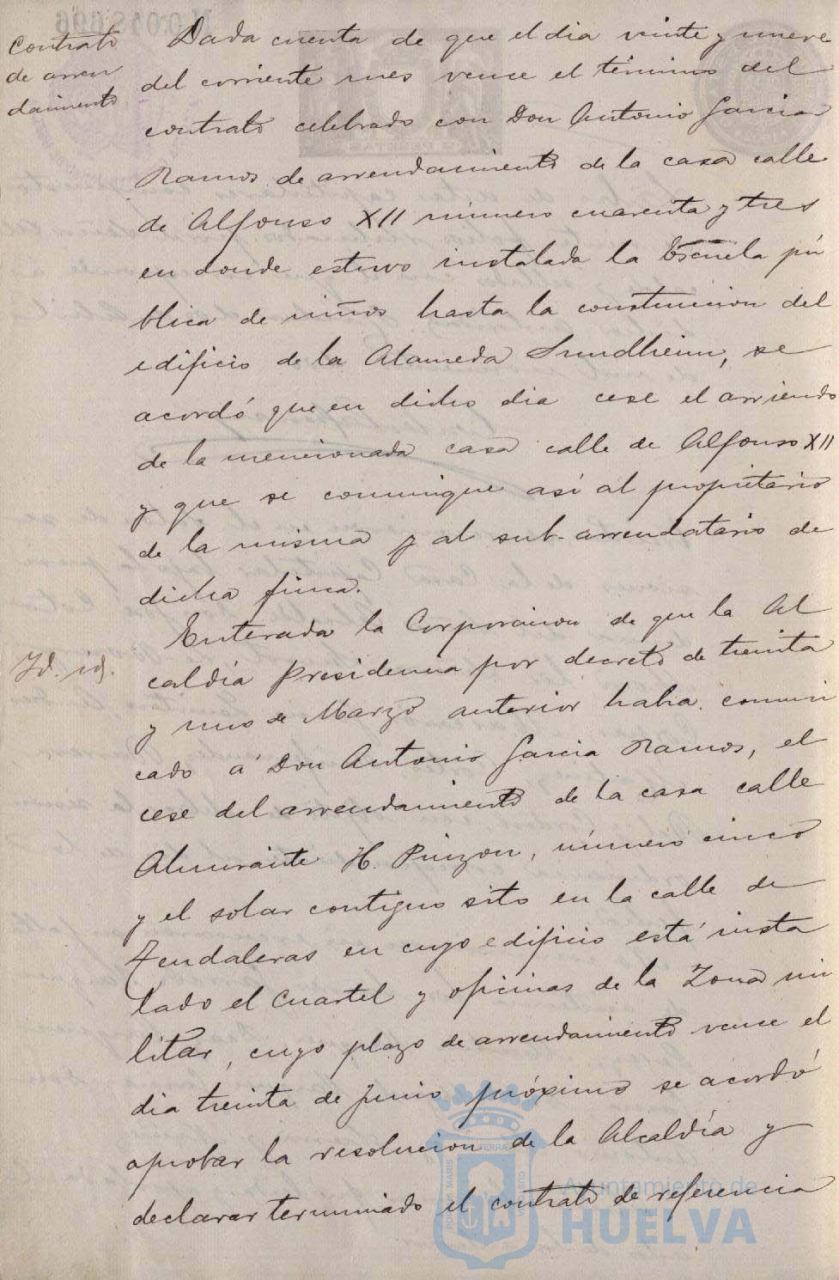 Contrato
de arren
damiento
Dada cuenta de que el dia veinte y nueve
del corriente mes vence el término del
contrato celebrado con Don Antonio Garcia
Ramos de arrendamiento de la casa calle
de Alfonso XII número cuarenta y tres
en donde estuvo instalada la Escuela pú
blica de niños hasta la construccion del
edificio de la Alameda Sundheim, se
acordó que en dicho dia cese el arriendo
de la mencionada casa calle de Alfonso XII
y que se comunique asi al propietario
de la misma y al sub-arrendatario de
dicha finca.
Id. id.
Enterada la Corporacion de que la Al
caldía Presidencia por decreto de treinta
y uno de Marzo anterior habia comuni
cado á Don Antonio Garcia Ramos, el
cese del arrendamiento de la casa calle
Almirante H. Pinzon, número cinco
y el solar contiguo sito en la calle de
Tendaleras en cuyo edificio está insta
lado el Cuartel y oficinas de la Zona mi
litar, cuyo plazo de arrendamiento vence el
dia treinta de Junio próximo se acordó
aprobar la resolucion de la Alcaldía y
declarar terminado el contrato de referencia
Ayuntamiento de
HUELVA